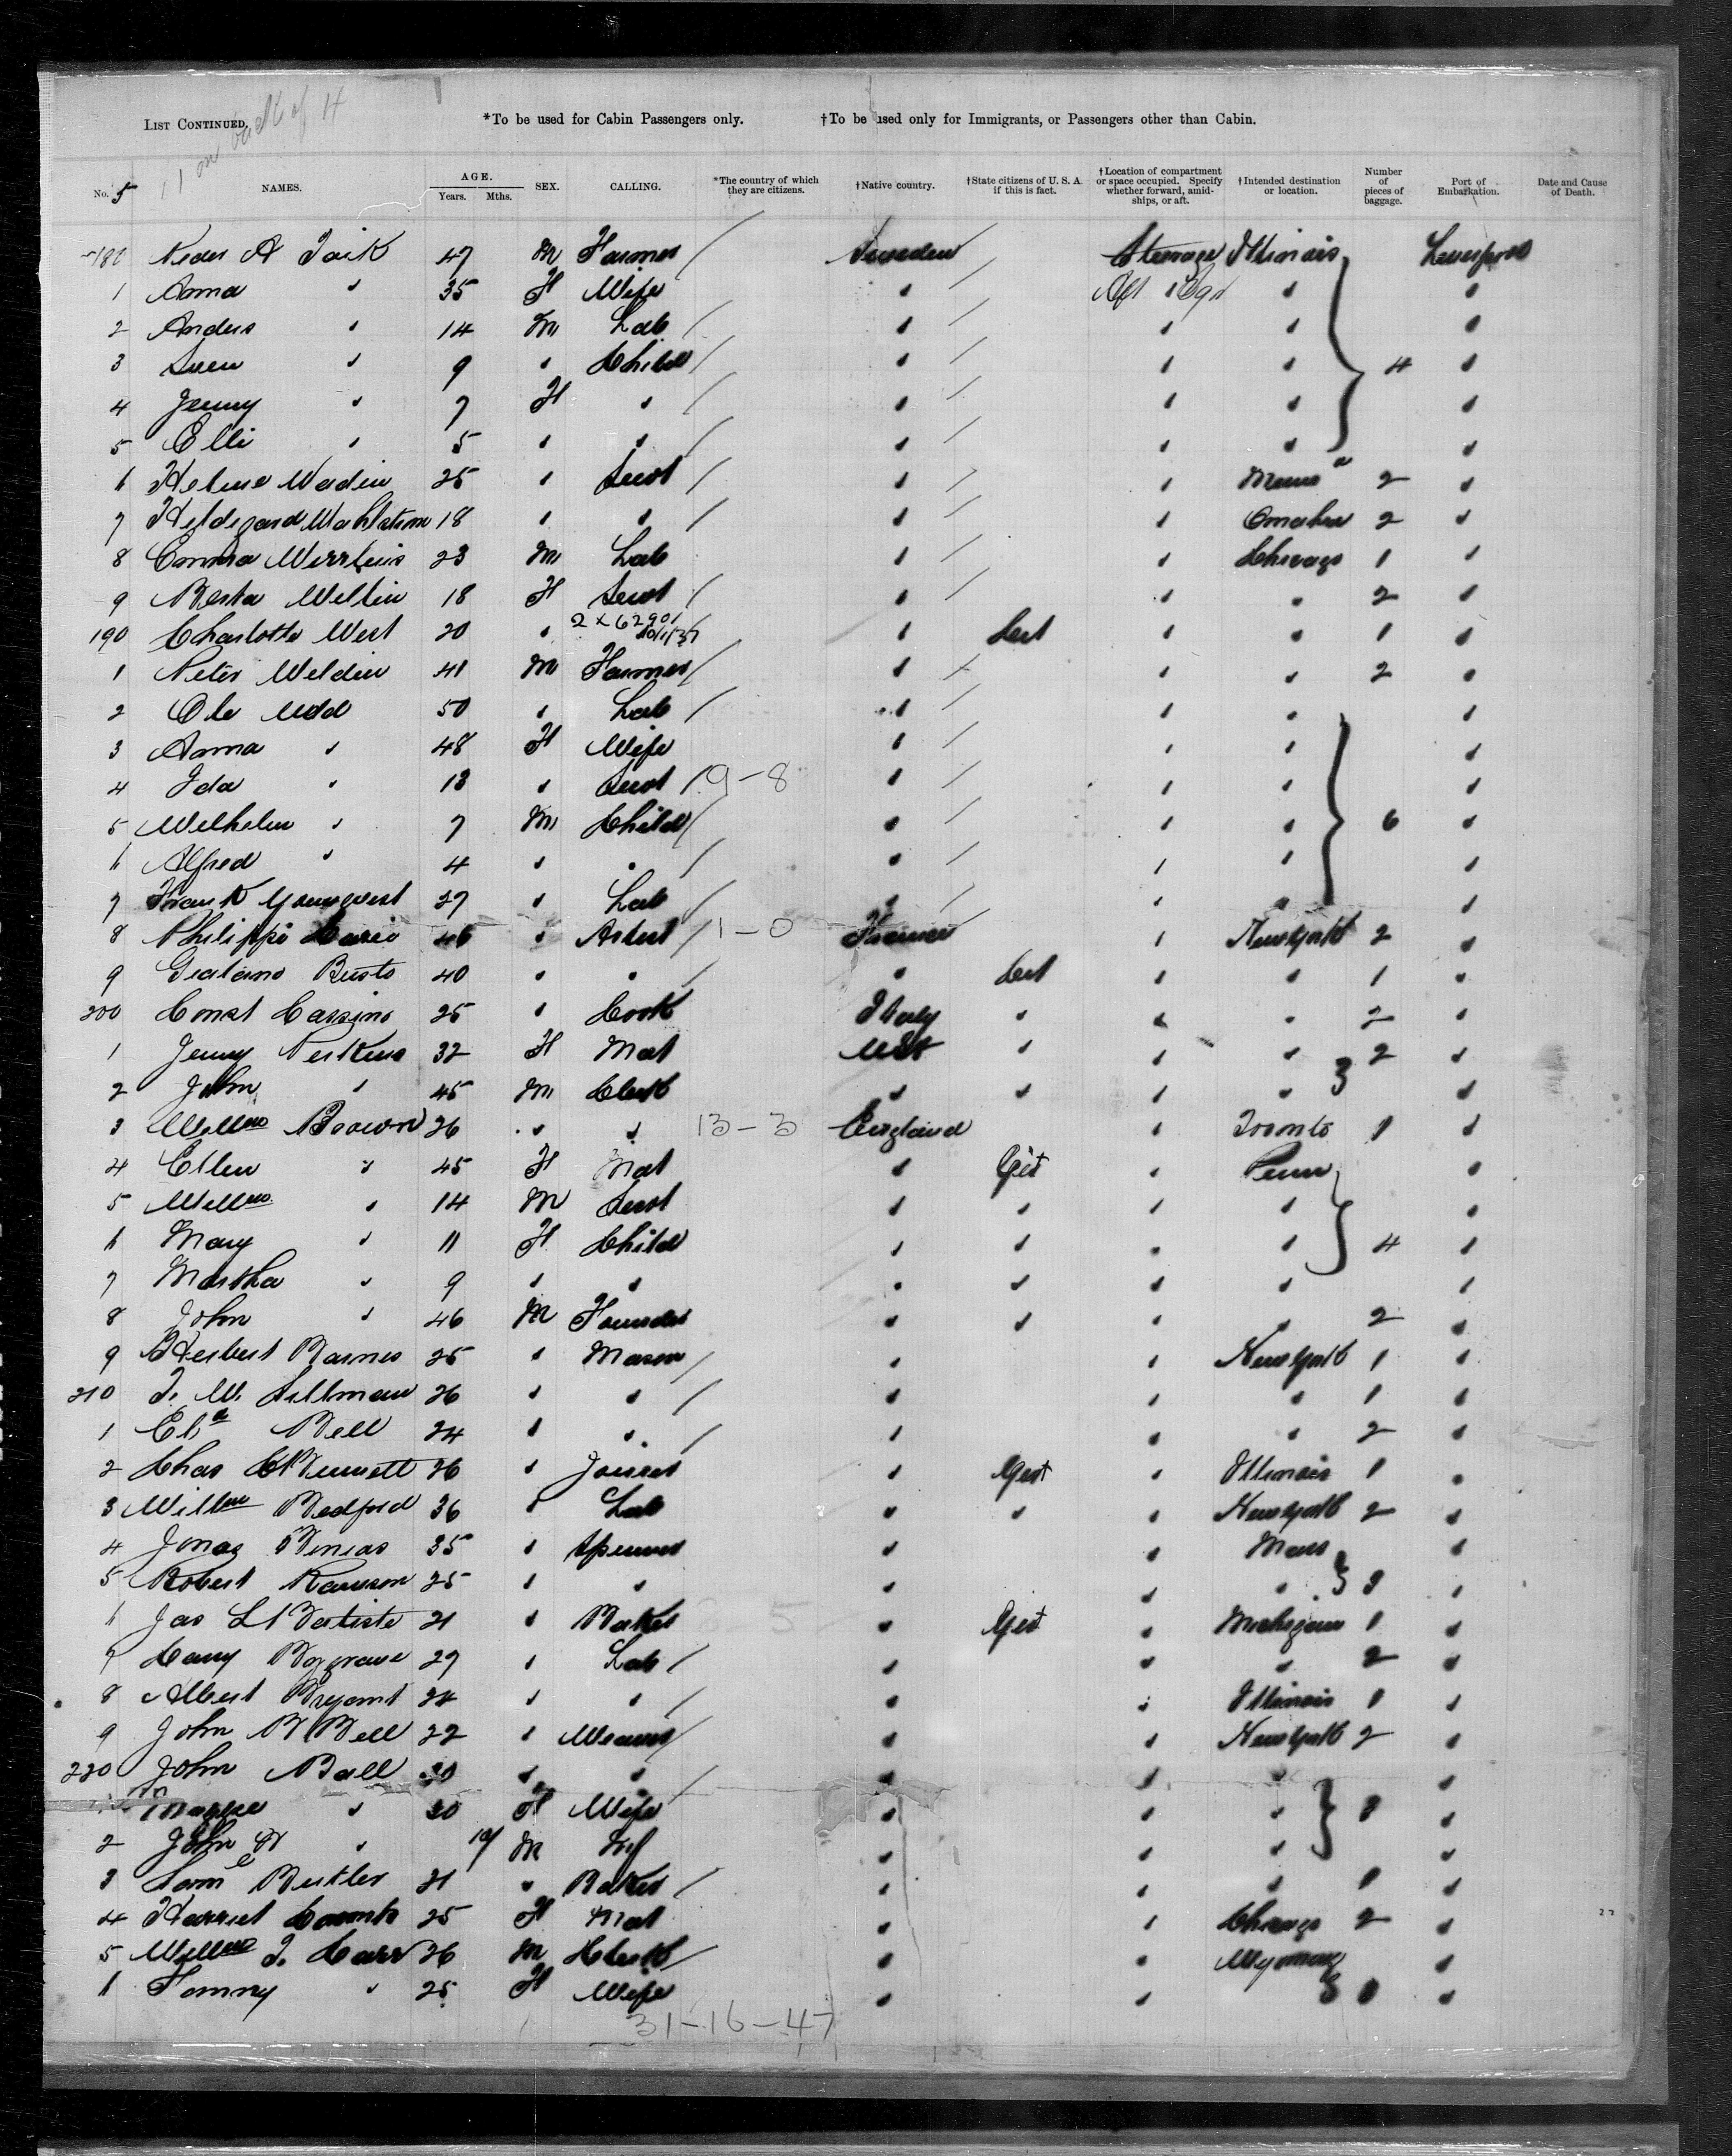 LIST CONTINUED. 11 on back of 4 *To be used for Cabin Passengers only. †To be used only for Immigrants, or Passengers other than Cabin.
No. 5 NAMES. AGE. Years. Mths. SEX. CALLING. *The country of which they are citizens. †Native country. †State citizens of U. S. A. if this is fact. †Location of compartment or space occupied. Specify whether forward, amidships, or aft. †Intended destination or location. Number of pieces of baggage. Port of Embarkation. Date and Cause of Death.
180 Peder A 47 M Farmer / Sweden / Steerage Illinois Liverpool
1 Anna " 35 F Wife " / Aft "
2 Anders " 14 M Lab / " / " " "
3 Sven " 9 " Child / " / " " 4 "
4 Jenny " 7 F " / " / " " "
5 Elli " 5 " " / " / " " "
6 Helene Wadin 25 " Servt / " / " 2 "
7 Hildegard Wahlstrom 18 " " / " / " Omaha 2 "
8 Emma 23 M Lab " / " Chicago 1 "
9 Berta Wellin 18 F Servt / " / " " 2 "
190 Charlotte West 20 " 2 x 62901 " Cert " " 1 "
1 Peter Weldin 41 M Farmer / " / " " 2 "
2 Ole Udd 50 " Lab / " / " " "
3 Anna " 48 F Wife " / " " "
4 Ida " 13 " Servt / 9-8 " / " " "
5 Wilhelm " 7 M Child / " / " " 6 "
6 Alfred " 4 " " / " / " " "
7 Frank Youngvist 27 " Lab / " / " " "
8 Philippi Mario 46 " Artist / 1-0 France " New York 2 "
9 Busto 40 " " / " Cert " " 1 "
200 Const Cassino 25 " Cook Italy " " " 2 "
1 Jenny Perkins 32 F Mat USA " " " 2 "
2 John " 45 M Clerk " " " " "
3 Willm Brown 26 " " 13-3 England " Toronto 1 "
4 Ellen " 45 F Mat " Cit " Penn "
5 Willm " 14 M Servt " " " " "
6 Mary " 11 F Child " " " " 4 "
7 Martha " 9 " " " " " " "
8 John " 46 M Founder " " " " 2 "
9 Herbert Barnes 25 " Mason / " " New York 1 "
210 T. W. 26 " " / " " " 1 "
1 Eli Bell 24 " " / " " " 2 "
2 Chas Bennett 26 " Joiner " Cit " Illinois 1 "
3 Willm Bedford 36 " Lab " " " New York 2 "
4 Jonas 35 " Spinner " " Mass "
5 Robert 25 " " " " " 3 "
6 Jas L Batiste 21 " Baker " Cit " Michigan 1 "
7 29 " Lab / " " " 2 "
8 Albert Bryant 24 " " / " " Illinois 1 "
9 John B Bell 22 " Weaver / " " New York 2 "
220 John Ball 30 " " / " " " "
Maggie " 30 F Wife " " " "
2 John W " 10/ M Inf " " " "
3 Saml Butler 21 " Baker / " " " 1 "
4 Harriet Coombs 25 F Mat " " Chicago 2 "
5 Willm T. Carr 26 M Clerk / " " Wyoming "
6 Fanny " 25 F Wife " " "
31-16-47